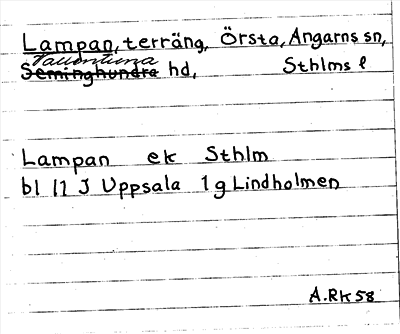 Lampan, terräng, Örsta, Angarns sn,
Vallentuna
Seminghundra hd, Sthlms l
Lampan ek Sthlm
bl 11 J Uppsala 1g Lindholmen
A.Rk 58